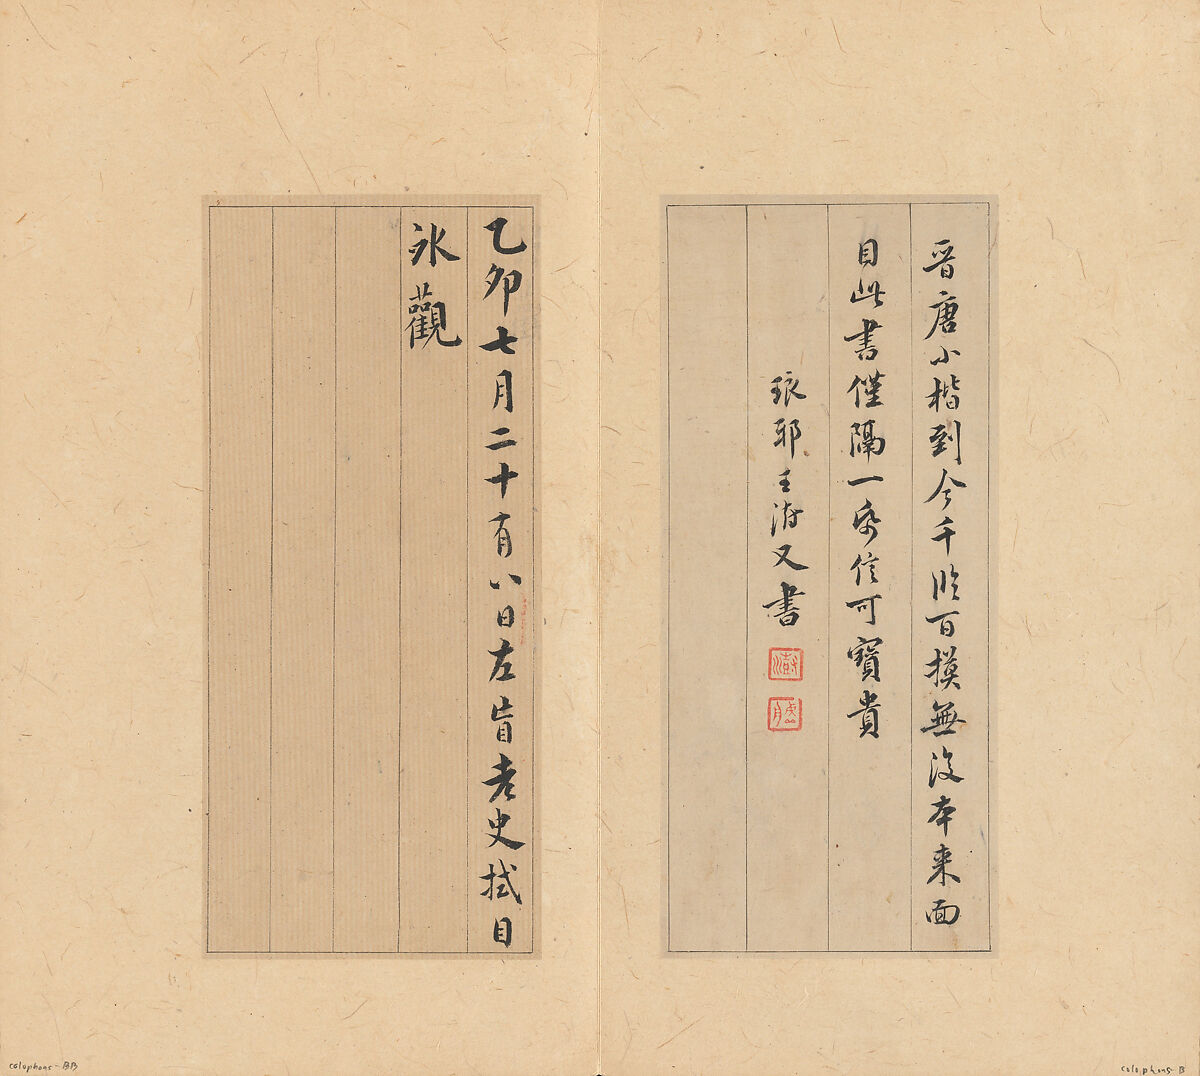 晉唐小楷到今千臨百摸無復本來面
目此書僅隔一帋信可寶貴
琅邪王澍又書
澍
乙卯七月二十有八日左盲老史拭目
觀
colophons - BB
colophons - B